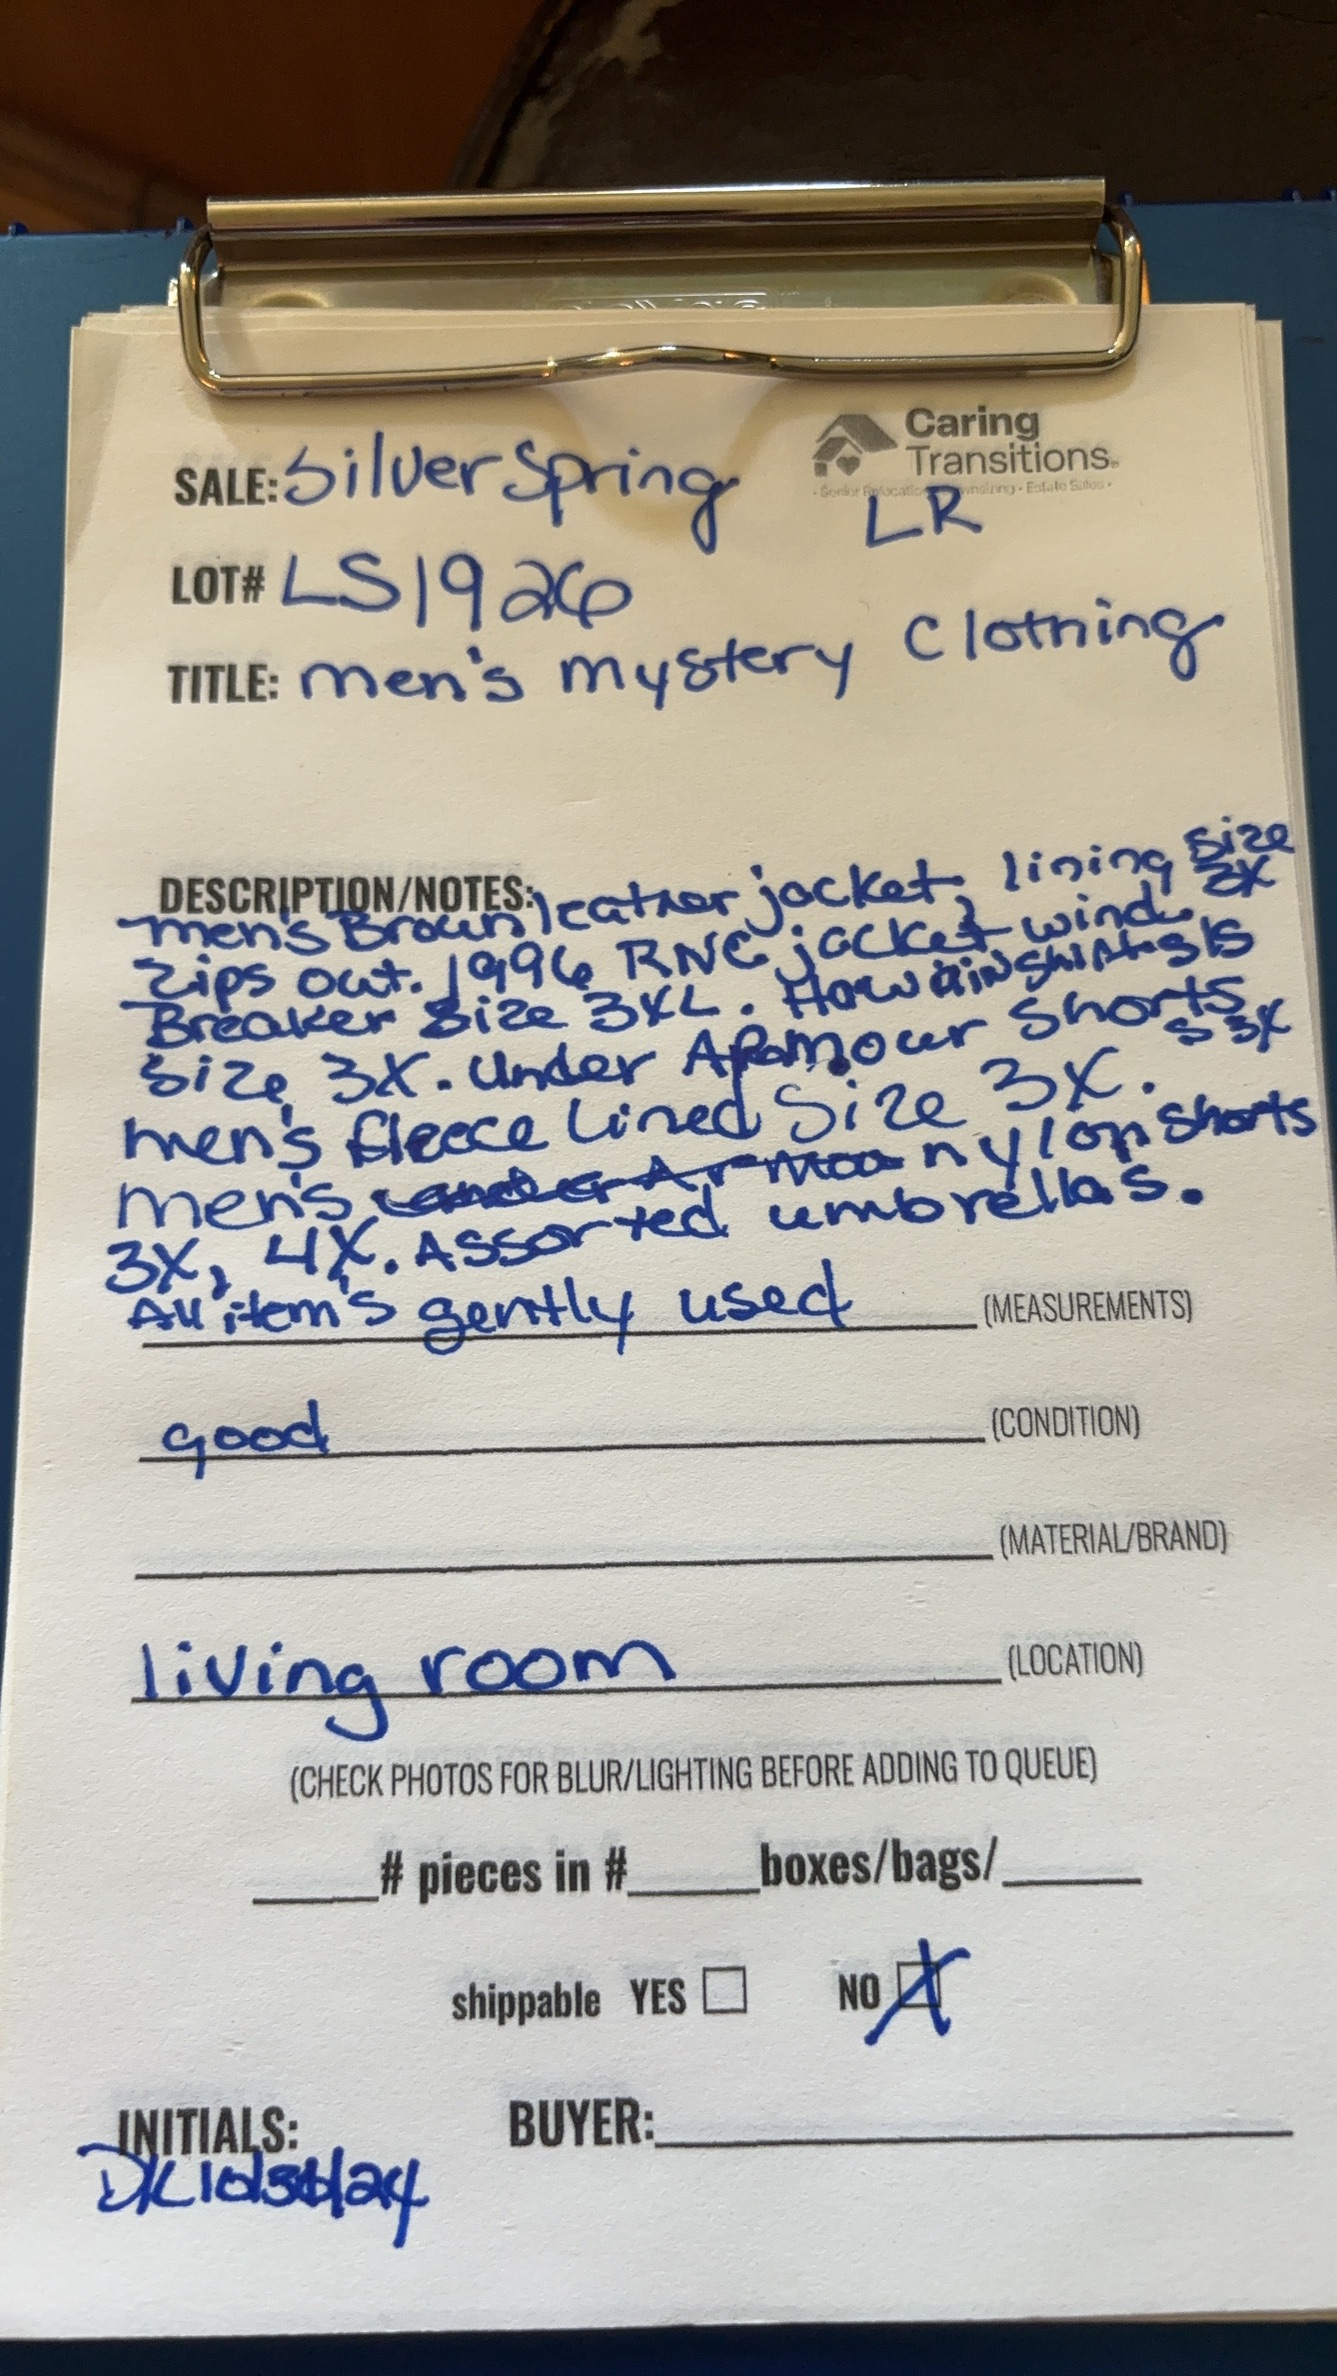 Caring
Transitions.
SALE: Silver Spring
LR
LOT# LS1926
TITLE: men's mystery Clothing
DESCRIPTION/NOTES:
men's Brown leather jacket, lining size 3X
zips out. 1996 RNC jacket wind
Breaker Size 3XL.
Size 3X. Under Armour Shorts
men's fleece lined Size 3X. s 3X
men's nylon shorts
3X, 4X. Assorted umbrellas.
All item's gently used (MEASUREMENTS)
good (CONDITION)
(MATERIAL/BRAND)
living room (LOCATION)
(CHECK PHOTOS FOR BLUR/LIGHTING BEFORE ADDING TO QUEUE)
# pieces in # boxes/bags/
shippable YES NO X
INITIALS: BUYER:
DK